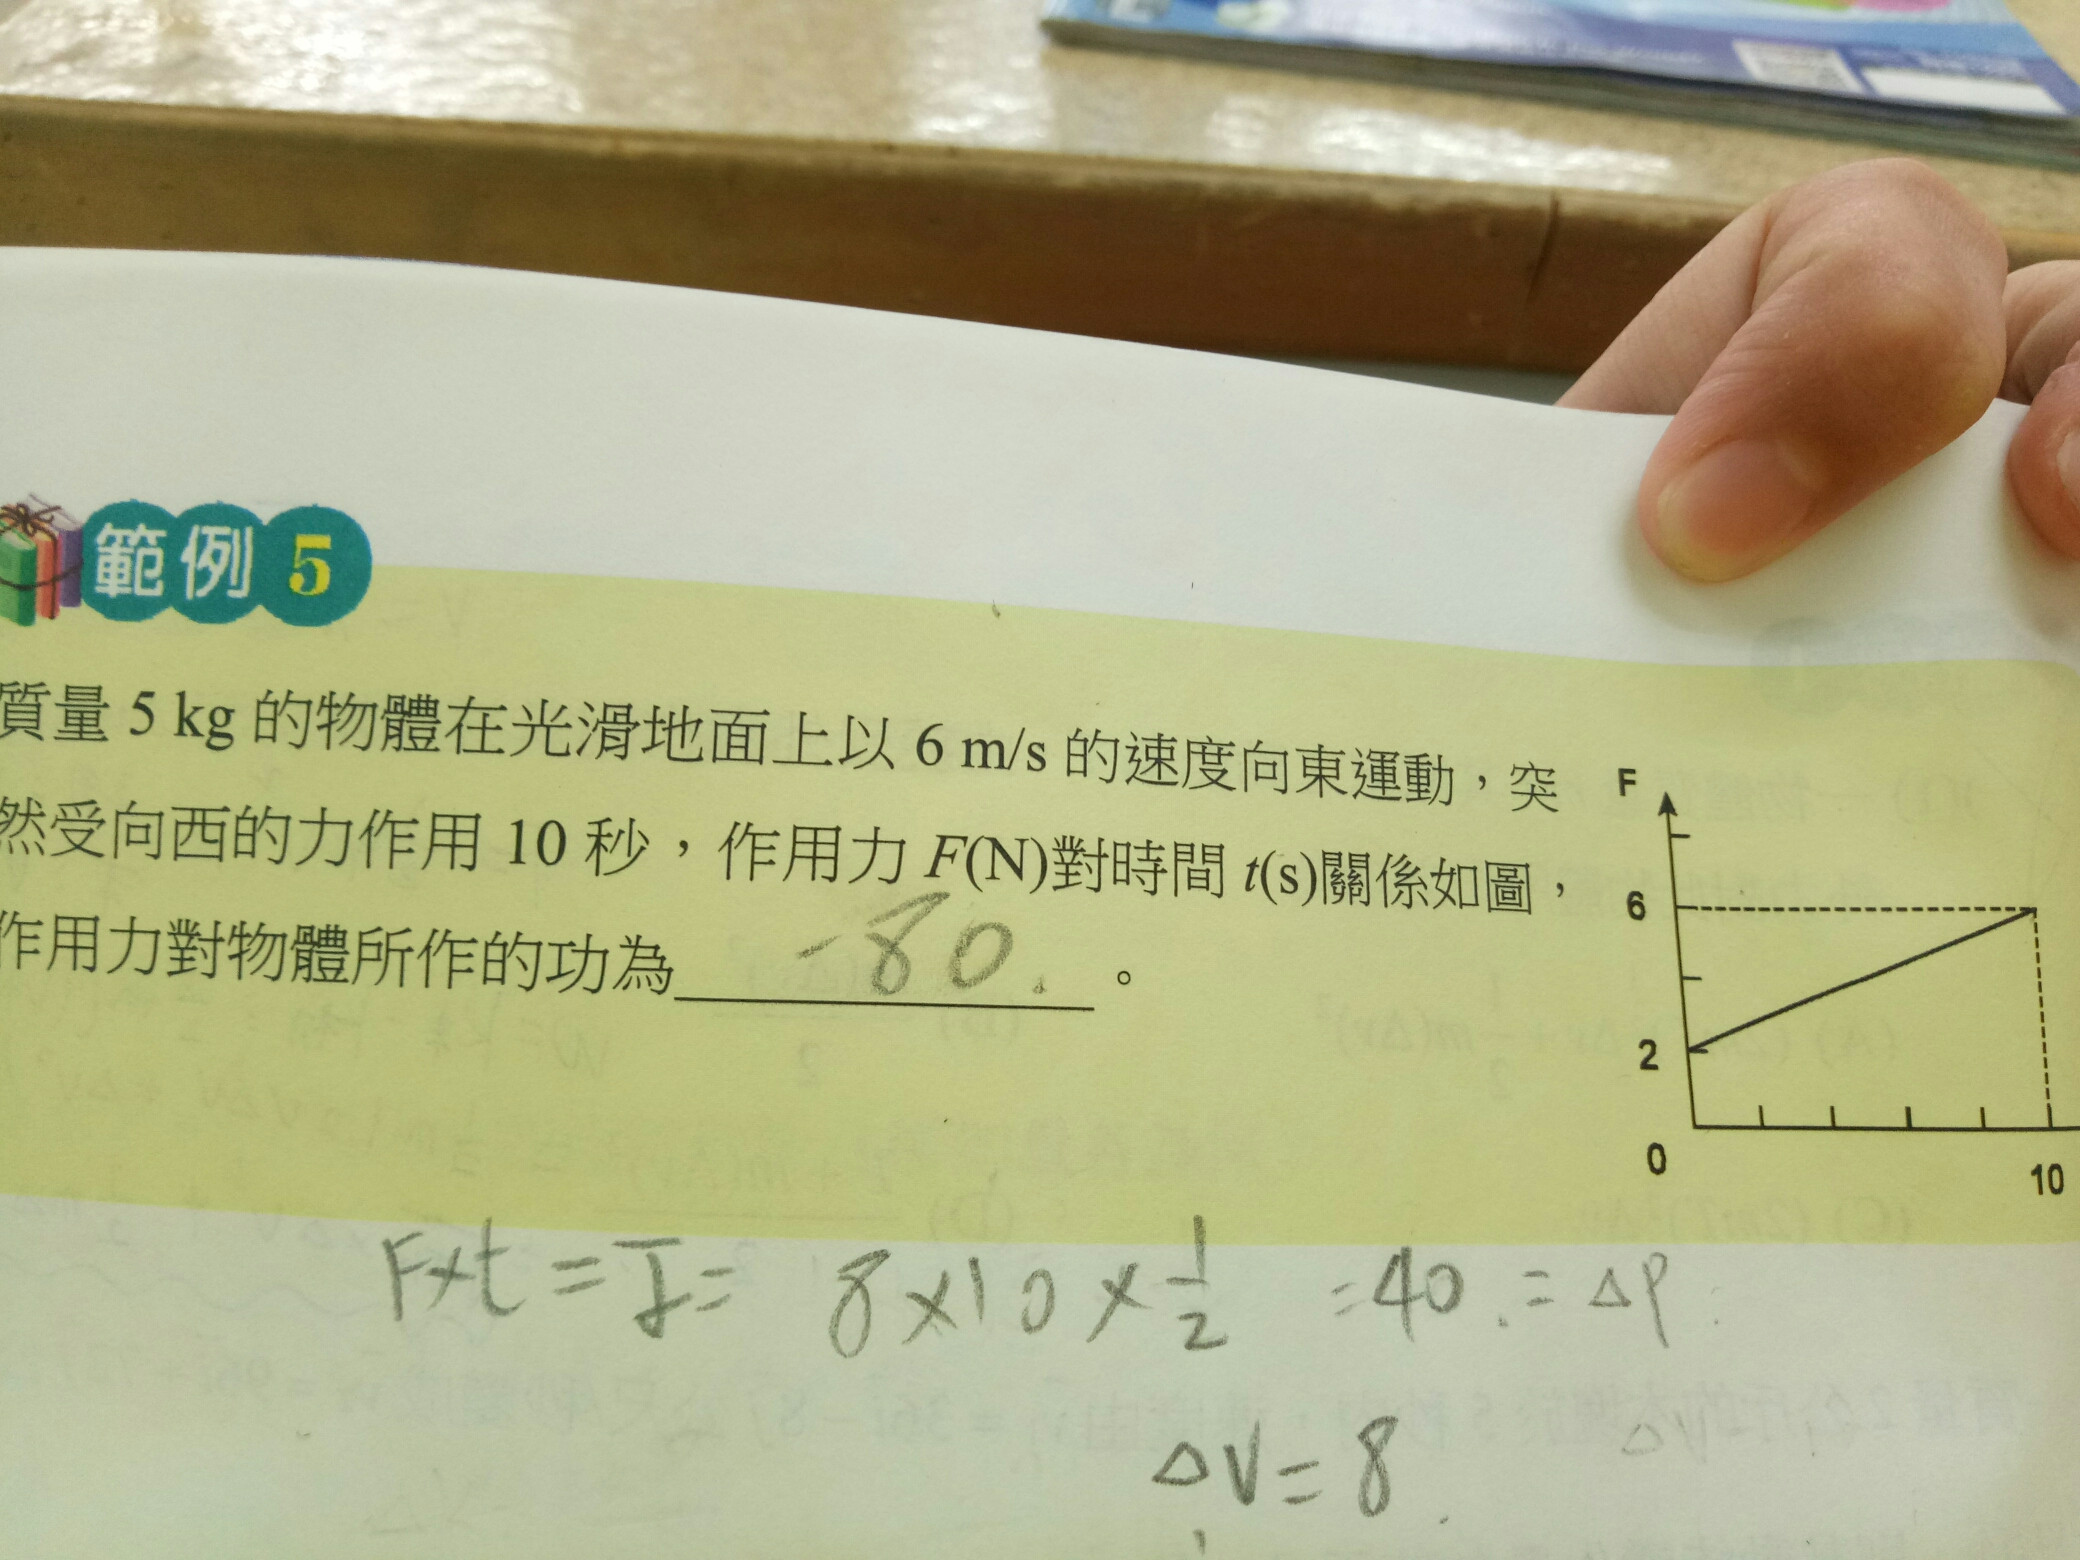 範例 5
質量 5 kg 的物體在光滑地面上以 6 m/s 的速度向東運動，突
然受向西的力作用 10 秒，作用力 F(N)對時間 t(s)關係如圖，
作用力對物體所作的功為 -80. 。
F
6
2
0
10
F×t = J = 8×10×1/2 =40. = ΔP.
ΔV= 8.